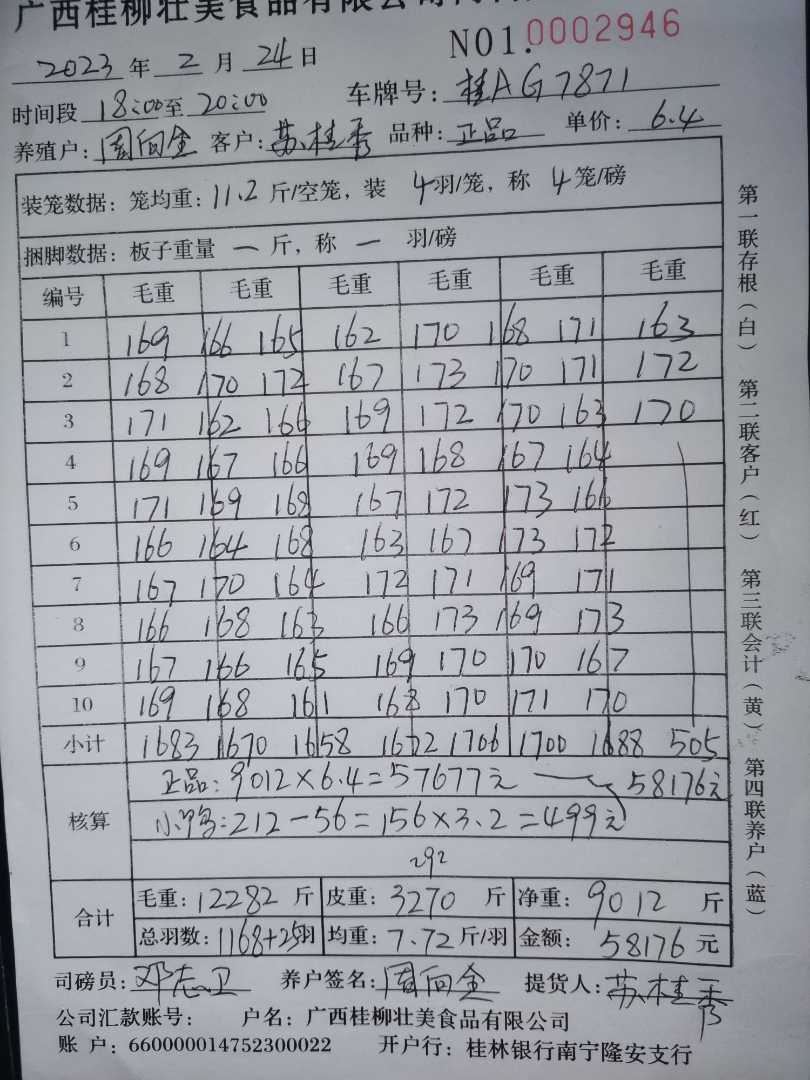 广西桂柳壮美食品有限公司
NO1.0002946
2023 年 2 月 24 日
时间段 18:00至 20:00 车牌号: 桂AG7871
养殖户: 周向全 客户: 苏桂秀 品种: 正品 单价: 6.4
装笼数据: 笼均重: 11.2 斤/空笼, 装 4羽/笼, 称 4笼/磅
捆脚数据: 板子重量 一 斤, 称 一 羽/磅
编号 毛重 毛重 毛重 毛重 毛重 毛重
1 169 166 165 162 170 168 171 163
2 168 170 172 167 173 170 171 172
3 171 162 166 169 172 170 163 170
4 169 167 166 169 168 167 164
5 171 169 168 167 172 173 166
6 166 164 168 163 167 173 172
7 167 170 164 172 171 169 171
8 166 168 163 166 173 169 173
9 167 166 165 169 170 170 167
10 169 168 161 168 170 171 170
小计 1683 1670 1658 1672 1706 1700 1688 505
核算
正品: 9012×6.4=57677元 — 58176元
小鸭: 212-56=156×3.2=499元
292
合计
毛重: 12282 斤 皮重: 3270 斤 净重: 9012 斤
总羽数: 1168+25羽 均重: 7.72 斤/羽 金额: 58176 元
司磅员: 邓志卫 养户签名: 周向全 提货人: 苏桂秀
公司汇款账号: 户名: 广西桂柳壮美食品有限公司
账 户: 660000014752300022 开户行: 桂林银行南宁隆安支行
第一联存根(白) 第二联客户(红) 第三联会计(黄) 第四联养户(蓝)